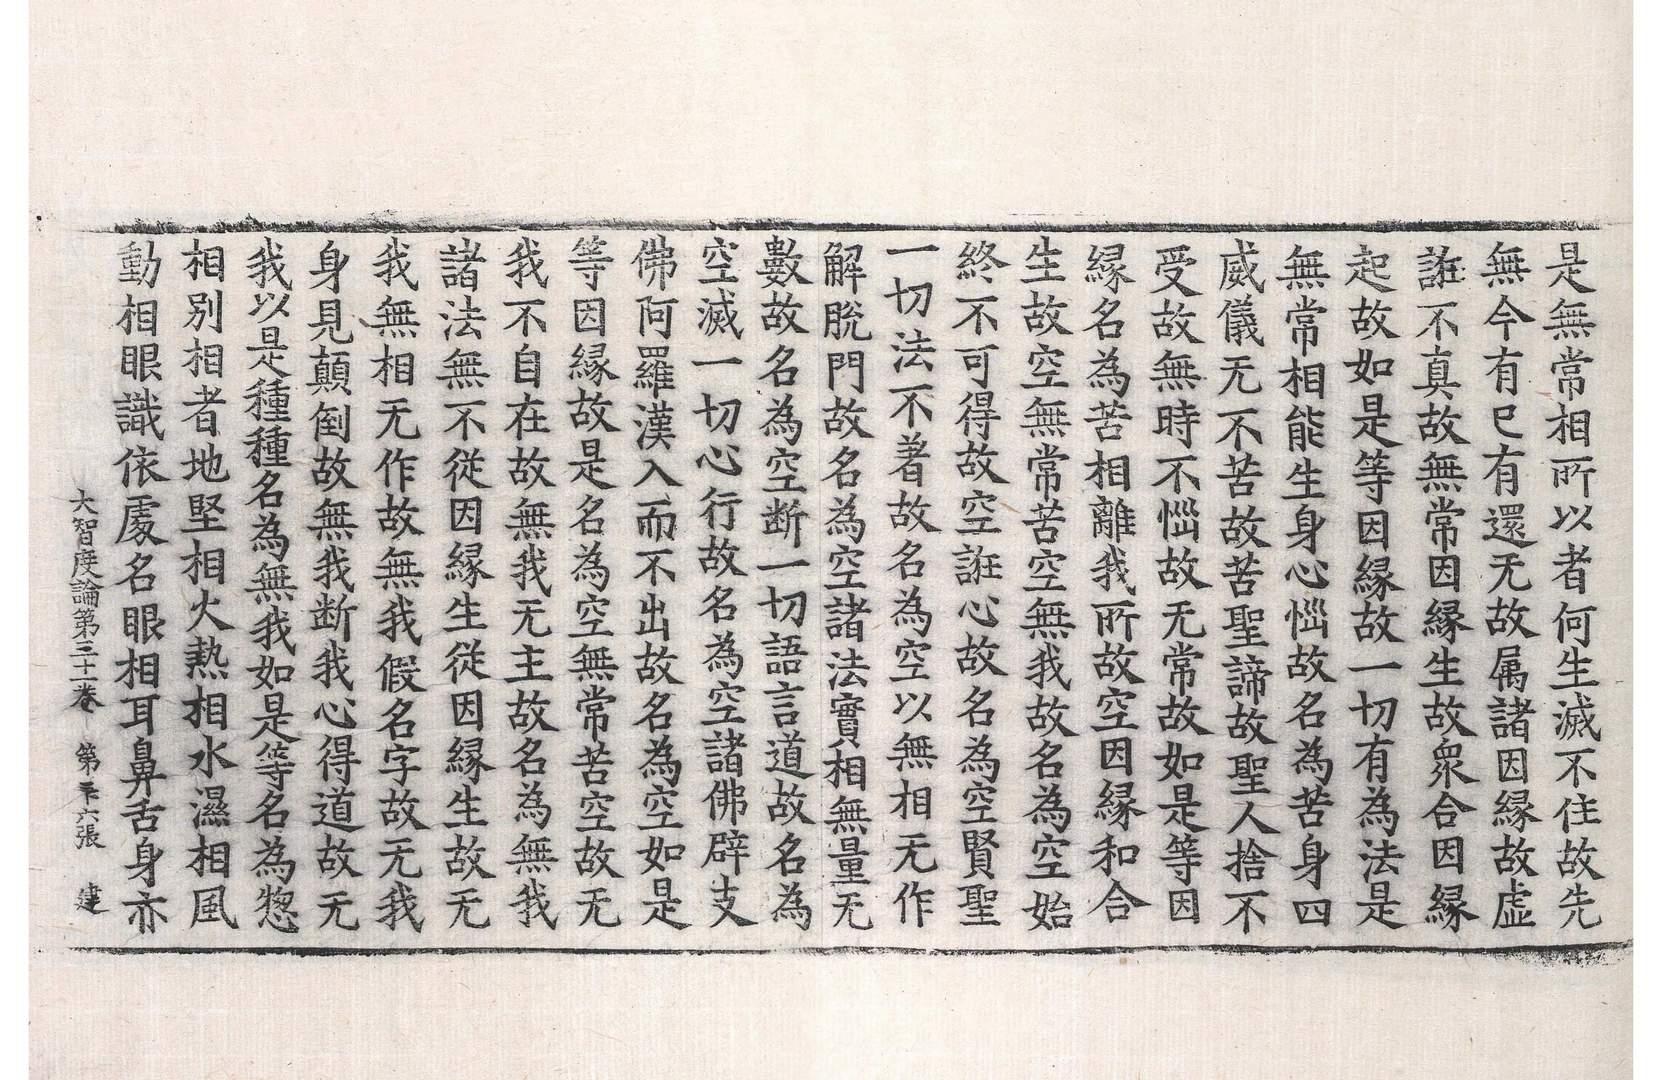 是無常相所以者何生滅不住故先
無今有已有還无故属諸因縁故虛
誑不真故無常因縁生故衆合因縁
起故如是等因縁故一切有為法是
無常相能生身心惱故名為苦身四
威儀无不苦故苦聖諦故聖人捨不
受故無時不惱故无常故如是等因
縁名為苦相離我所故空因縁和合
生故空無常苦空無我故名為空始
終不可得故空誑心故名為空賢聖
一切法不著故名為空以無相无作
解脫門故名為空諸法實相無量无
數故名為空断一切語言道故名為
空滅一切心行故名為空諸佛辟支
佛阿羅漢入而不出故名為空如是
等因縁故是名為空無常苦空故无
我不自在故無我无主故名為無我
諸法無不從因縁生從因縁生故无
我無相无作故無我假名字故无我
身見顛倒故無我断我心得道故无
我以是種種名為無我如是等名為惣
相別相者地堅相火熱相水濕相風
動相眼識依處名眼相耳鼻舌身亦
大智度論第三十一卷 第六張 建